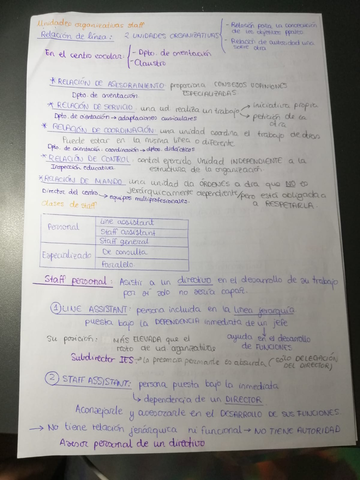 Unidades organizativas staff
Relación de línea: 2 UNIDADES ORGANIZATIVAS
- Relación para la consecución de un objetivo
- Relación de autoridad una sobre otra
En el centro escolar:
- Dpto. de orientación
- Claustro
* RELACIÓN DE ASESORAMIENTO proporciona CONSEJOS OPINIONES ESPECIALIZADAS
Dpto. de orientación
* RELACIÓN DE SERVICIO: una ud. realiza un trabajo
iniciativa propia
petición de la otra
Dpto. de orientación → adaptaciones curriculares
* RELACIÓN DE COORDINACIÓN: una unidad coordina el trabajo de otras
Puede estar en la misma línea o diferente
Dpto. de orientación: coordinación → dptos. didácticos
* RELACIÓN DE CONTROL: control ejercido Unidad INDEPENDIENTE a la estructura de la organización
Inspección educativa
* RELACIÓN DE MANDO: una unidad da órdenes a otra que NO es jerárquicamente dependiente/pero está obligado a RESPETARLA
Director del centro → equipos multiprofesionales
Clases de staff
Personal
Line assistant
Staff assistant
Staff general
Especializado
De consulta
Paralelo
Staff personal: Asistir a un directivo en el desarrollo de su trabajo
por sí solo no sería capaz.
① LINE ASSISTANT: persona incluida en la línea jerárquica
puesta bajo la DEPENDENCIA inmediata de un jefe
ayuda en el desarrollo de FUNCIONES
Su posición: MÁS ELEVADA que el resto de ud. organizativas
Subdirector IES: → la presencia permanente es absurda (SOLO DELEGACIÓN DEL DIRECTOR)
② STAFF ASSISTANT: persona puesta bajo la inmediata
↳ dependencia de un DIRECTOR
Aconsejarle y asesorarle en el DESARROLLO DE SUS FUNCIONES
→ No tiene relación jerárquica ni funcional → NO TIENE AUTORIDAD
Asesor personal de un directivo